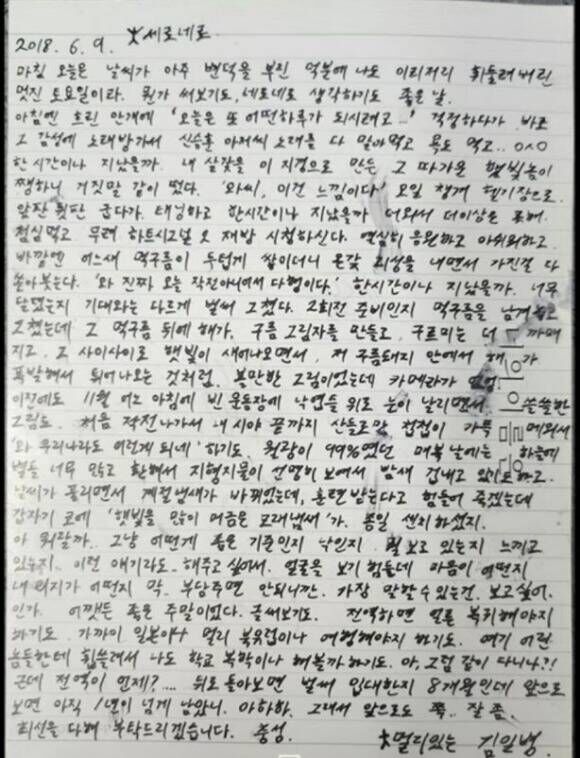 2018. 6. 9. 세로네로
마침 오늘은 날씨가 아주 변덕을 부린 덕분에 나도 이리저리 휘둘려버린
멋진 토요일이라. 뭔가 써보기도, 네로네로 생각하기도 좋은 날.
아침엔 흐린 안개에 '오늘은 또 어떤하루가 되시려고...' 걱정하다가 바로
그 감성에 노래방가서 신승훈 아저씨 노래를 다 잡아먹고 욕도 먹고.. ㅇㅅㅇ
한시간이나 지났을까. 내 살갗을 이 지경으로 만든 그 따가운 햇빛놈이
쨍하니 거짓말 같이 떴다. '와씨, 이건 느낌이다' 오일 챙겨 헬기장으로.
앞판 뒷판 굽다가. 태닝하고 한시간이나 지났을까 더워서 더이상은 못해
점심먹고 무려 하트시그널 오 재방 시청하신다. 열심히 응원하고 아쉬워하고.
바깥엔 어느새 먹구름이 두텁게 쌓이더니 온갖 괴성을 내면서 가진걸 다
쏟아붓는다. '와 진짜 오늘 작전아니어서 다행이다.' 한시간이나 지났을까. 너무
달렸는지 기대와는 다르게 벌써 그쳤다. 2회전 준비인지 먹구름을 남겨놓고
그쳤는데 그 먹구름 뒤에 해가, 구름 그림자를 만들고, 구르미는 더 까매
지고, 그 사이사이로 햇빛이 새어나오면서, 저 구름돼지 안에서 해가
폭발해서 튀어나오는 것처럼. 볼만한 그림이었는데 카메라가 없엉
이전에도 11월 어느 아침에 빈 운동장에 낙엽들 위로 눈이 날리면서 쓸쓸한
그림도. 처음 작전나가서 내 시야 끝까지 산들로만 첩첩이 가득 메워서
'와 우리나라도 이렇게 되네' 하기도. 월광이 99%였던 매복 날에는 하늘에
별들 너무 많고 환해서 지형지물이 선명히 보여서 밤새 겁내고 있기도하고.
날씨가 풀리면서 계절냄새가 바뀌었는데, 훈련 받는다고 힘들어 죽겠는데
갑자기 코에 '햇빛을 많이 머금은 모래냄새'가. 종일 센치하셨지.
아 뭐랄까.. 그냥 어떻게 좋은 기준인지 낙인지 뭘 보고 있는지 느끼고
있는지.. 이런 얘기라도.. 해주고 싶어서. 얼굴을 보기 힘들데 마음이 어떤지
내 의지가 어떤지 막.. 부담주면 안되니깐. 가장 말할수 있는건. 보고싶어.
인가. 어쨌든 좋은 주말이었다. 글써보기도. 전역하면 얼른 복학해야지
하기도. 가까이 일본이나 멀리 북유럽이나 여행해야지 하기도. 여기 어린
놈들한테 휩쓸려서 나도 학교 복학이나 해볼까하기도. 아, 그럼 같이 다니나?!
근데 전역이 언제?.... 뒤로 돌아보면 벌써 입대한지 8개월인데 앞으로
보면 아직 1년이 넘게 남았니. 아하하. 그래서 앞으로도 쭉.. 잘 좀.
최선을 다해 부탁드리겠습니다. 충성.
멀리있는 김일병.